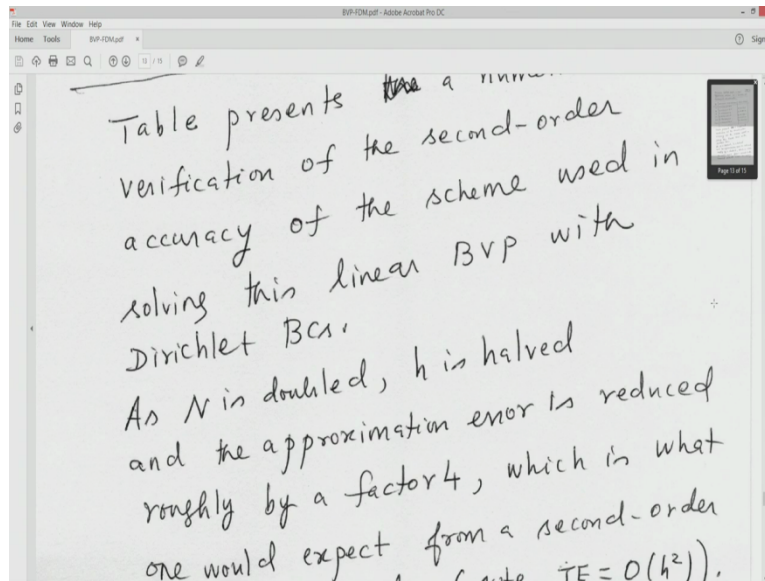 BVP-FDM.pdf - Adobe Acrobat Pro DC
File Edit View Window Help
Home Tools BVP-FDM.pdf x Sign
13 / 15
Table presents a
verification of the second-order
accuracy of the scheme used in
solving this linear BVP with
Dirichlet BCs.
As N is doubled, h is halved
and the approximation error is reduced
roughly by a factor 4, which is what
one would expect from a second-order
TE = O(h²)).
Page 13 of 15